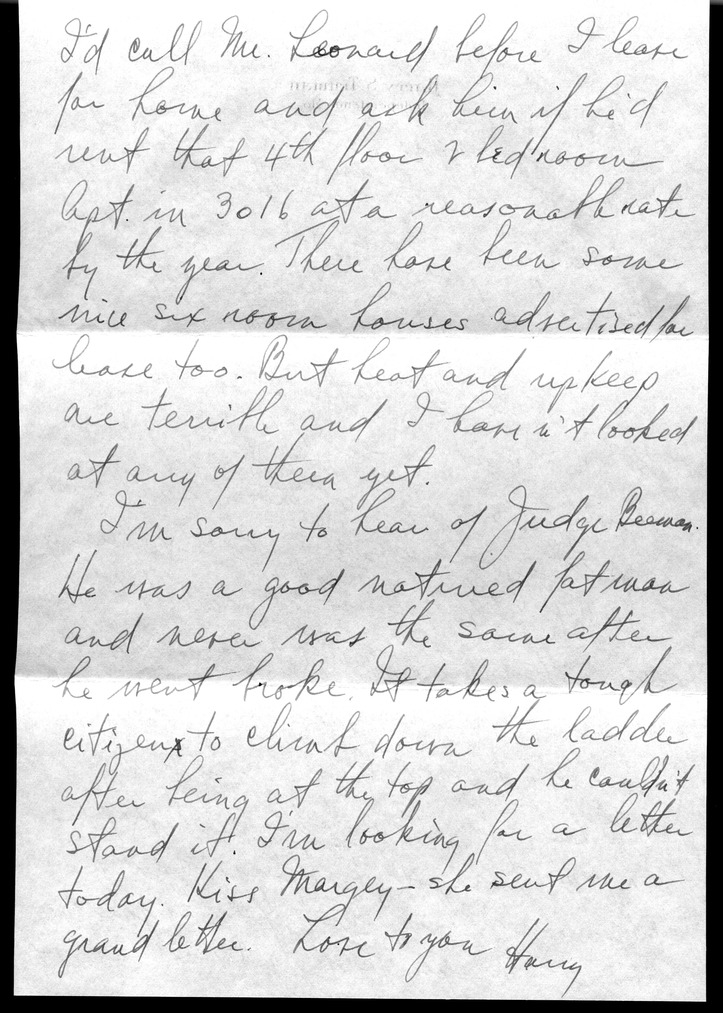 I'd call Mr. Leonard before I leave
for home and ask him if he'd
rent that 4th floor 2 bed room
Apt. in 3016 at a reasonable rate
by the year. There have been some
nice six room houses advertised for
lease too. But heat and upkeep
are terrible and I haven't looked
at any of them yet.
I'm sorry to hear of Judge Beeman.
He was a good natured fat man
and never was the same after
he went broke. It takes a tough
citizen to climb down the ladder
after being at the top and he couldn't
stand it. I'm looking for a letter
today. Kiss Margey - she sent me a
grand letter. Love to you Harry